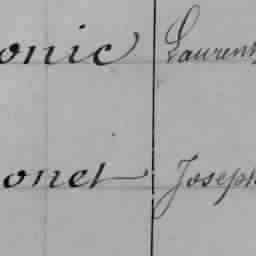 onic Laurent
onet Joseph